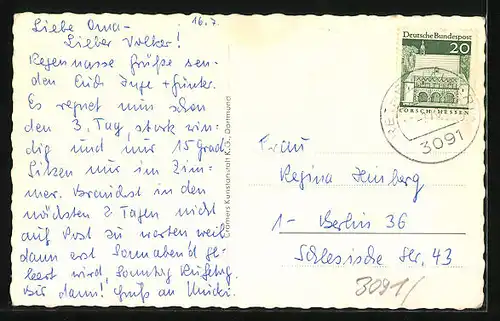 Liebe Oma - 16.7.
Lieber Volker!
Regennasse Grüße sen-
den Euch Inge + Günter.
Es regnet nun schon
den 3. Tag, stark win-
dig und nur 15 Grad.
Sitzen nur im Zim-
mer. Brauchst in den
nächsten 2 Tagen nicht
auf Post zu warten weil
dann erst Sonnabend ge-
leert wird. Sonntag
Bis dann! Gruß an
Cramers Kunstanstalt K.G., Dortmund
Deutsche Bundespost
20
LORSCH/HESSEN
3091
Frau
Regina Homberg
1 - Berlin 36
Schlesische Str. 43
3091/